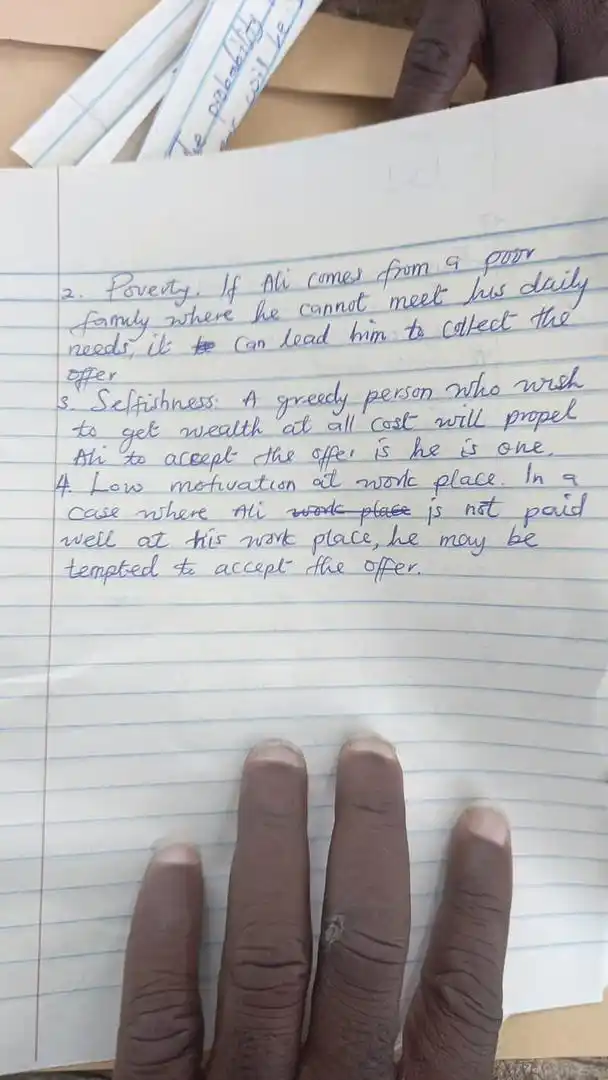 The probability
coil be
2. Poverty. If Ali comes from a poor
family where he cannot meet his daily
needs, it to can lead him to collect the
offer
3. Selfishness: A greedy person who wish
to get wealth at all cost will propel
Ali to accept the offer is he is one.
4. Low motivation at work place. In a
case where Ali work place is not paid
well at his work place, he may be
tempted to accept the offer.